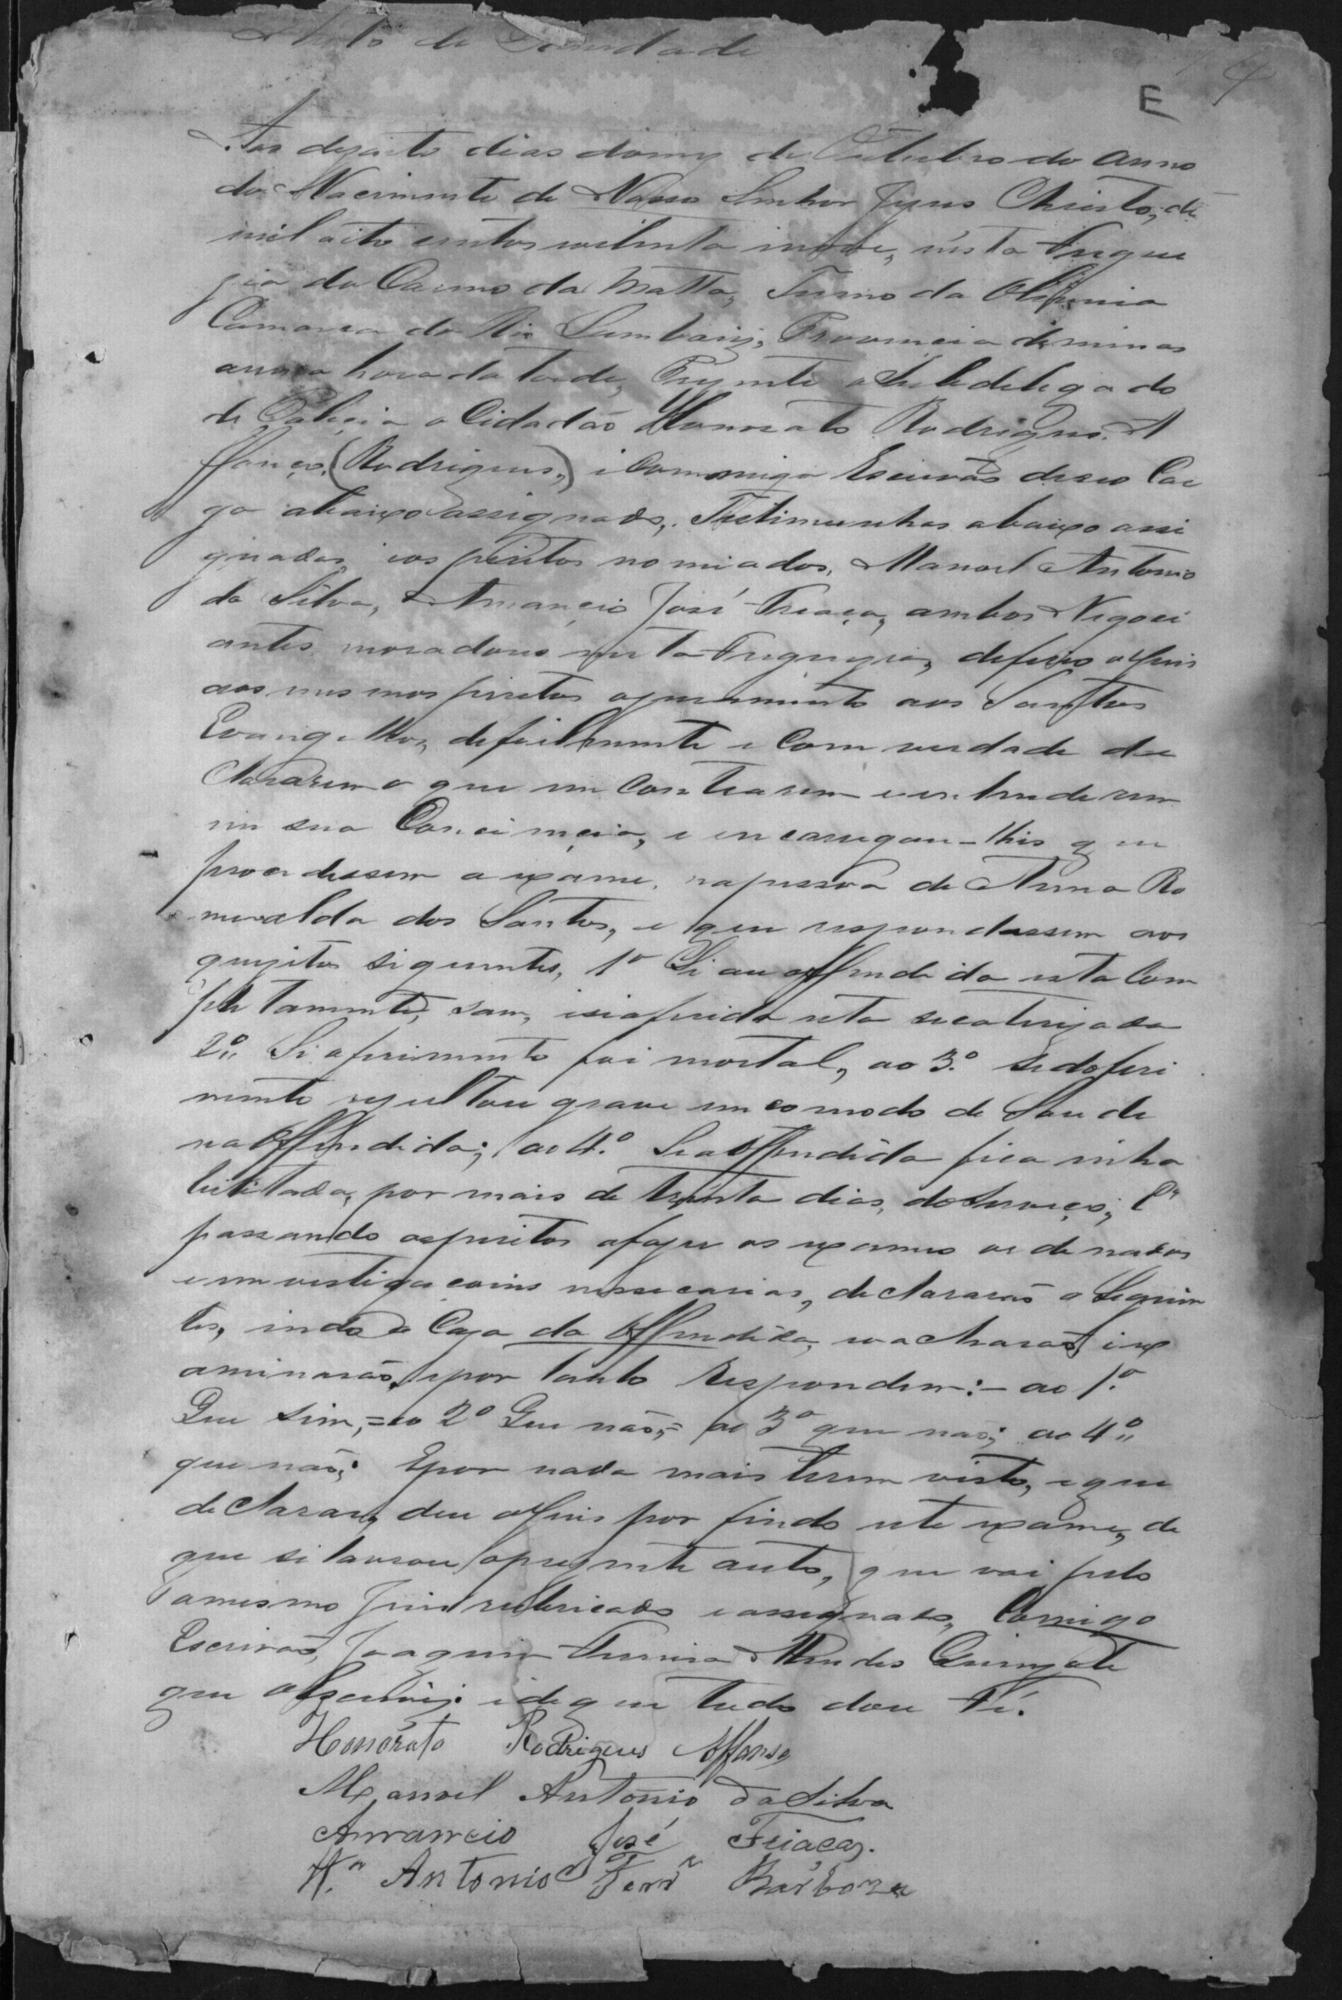 Auto de Sanidade
E
Aos dezoito dias do mez de Outubro do anno
do Nacimento de Nosso Senhor Jezus Christo, de
mil oito centos oitenta inove, nesta Fregue
zia do Carmo da Matta, Termo da Oliveira
Comarca do Rio Lambary, Provincia de minas
auma hora da tarde, Prezente o Subdelegado
de Policia o Cidadão Honorato Rodrigues A
ffonço, (Rodrigues,) i Commigo Escrivão deseo Car
go abaixo assignado, Testimunhas abaixo assi
gnadas ios peritos nomiados, Manoel Antonio
da Silva, Amancio José Friaça, ambos Negoci
antes moradores nesta Freguezia, deferio o Juis
aos mesmos piritos ojuramento aos Santos
Evangelhos, defeilmente e Com verdade de
Clararem o que en contrarem e entenderem
em sua Conciencia, e encarregou-lhis que
procedessem a exame na pessoa de Anna Ro
mualda dos Santos, e que respondessem aos
quezitos siguentes, 1º Si au offendida esta Com
pletamente, sam, isiaferida esta secatrizada
2º Si oferimento foi mortal, ao 3º se do feri
mento rezultou grave emcomodo de Saude
na Offendida; ao 4º Sea Offendida fica inha
bilitada, por mais de trinta dias, do Serviço; E
passando os piritos afazer os exames ordenados
e investigacoins nessecarias, declararão o Seguin
tes, indo a Caza da Offendida, e a acharão, iex
aminarão, epor tanto Respondem:- ao 1º
Que Sim,= ao 2º Que não;= ao 3º que não; ao 4º
que não; Epor nada mais terem visto, eque
declarar, deu o Juis por findo este exame, de
que si lavrou oprezente auto, que vai pelo
omesmo Juis rubricado eassignado, Comigo
Escrivão, Joaquim Ferreira Mendes
que o Escrivi: ide que tudo dou Fé.
Honórato Rodrigues Affonso
Manoel Antonio da Silva
Amancio José Friaça.
Antonio Ferrª Barboza